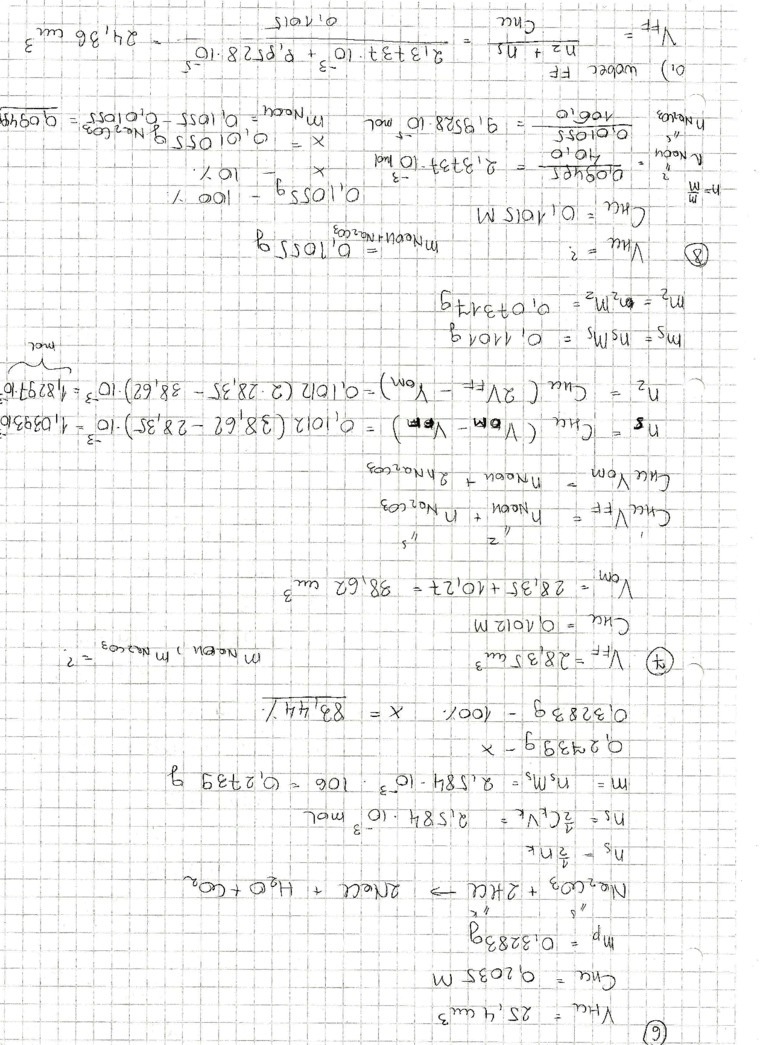 ⑥
V HCl = 25,4 cm³
C HCl = 0,2035 M
mp = 0,3283 g
"s "k
Na2CO3 + 2HCl → 2NaCl + H2O + CO2
ns = ½ nk
ns = ½ Ck Vk = 2,584 · 10⁻³ mol
m = ns Ms = 2,584 · 10⁻³ · 106 = 0,2739 g
0,2739 g – x
0,3283 g – 100% x = 83,44 %
⑦ V FF = 28,35 cm³ m NaOH, m Na2CO3 = ?
C HCl = 0,1012 M
V OM = 28,35 + 10,27 = 38,62 cm³
"z "s
C HCl V FF = n NaOH + n Na2CO3
C HCl V OM = n NaOH + 2n Na2CO3
ns = C HCl (V OM – V FF) = 0,1012 (38,62 – 28,35) · 10⁻³ = 1,0393·10⁻³
nz = C HCl (2V FF – V OM) = 0,1012 (2 · 28,35 – 38,62) · 10⁻³ = 1,8297·10⁻³
mol
ms = ns Ms = 0,1101 g
mz = nz Mz = 0,07317 g
⑧ V HCl = ? m NaOH+Na2CO3 = 0,1055 g
C HCl = 0,1015 M
0,1055 g – 100 %
n = m/M x – 10 %
"z n NaOH = 0,09495 / 40,0 = 2,3737 · 10⁻³ mol x = 0,01055 g Na2CO3
"s n Na2CO3 = 0,01055 / 106,0 = 9,9528 · 10⁻⁵ mol m NaOH = 0,1055 – 0,01055 = 0,09495
a,)
V FF = nz + ns / C HCl = 2,3737 · 10⁻³ + 9,9528 · 10⁻⁵ / 0,1015 = 24,36 cm³